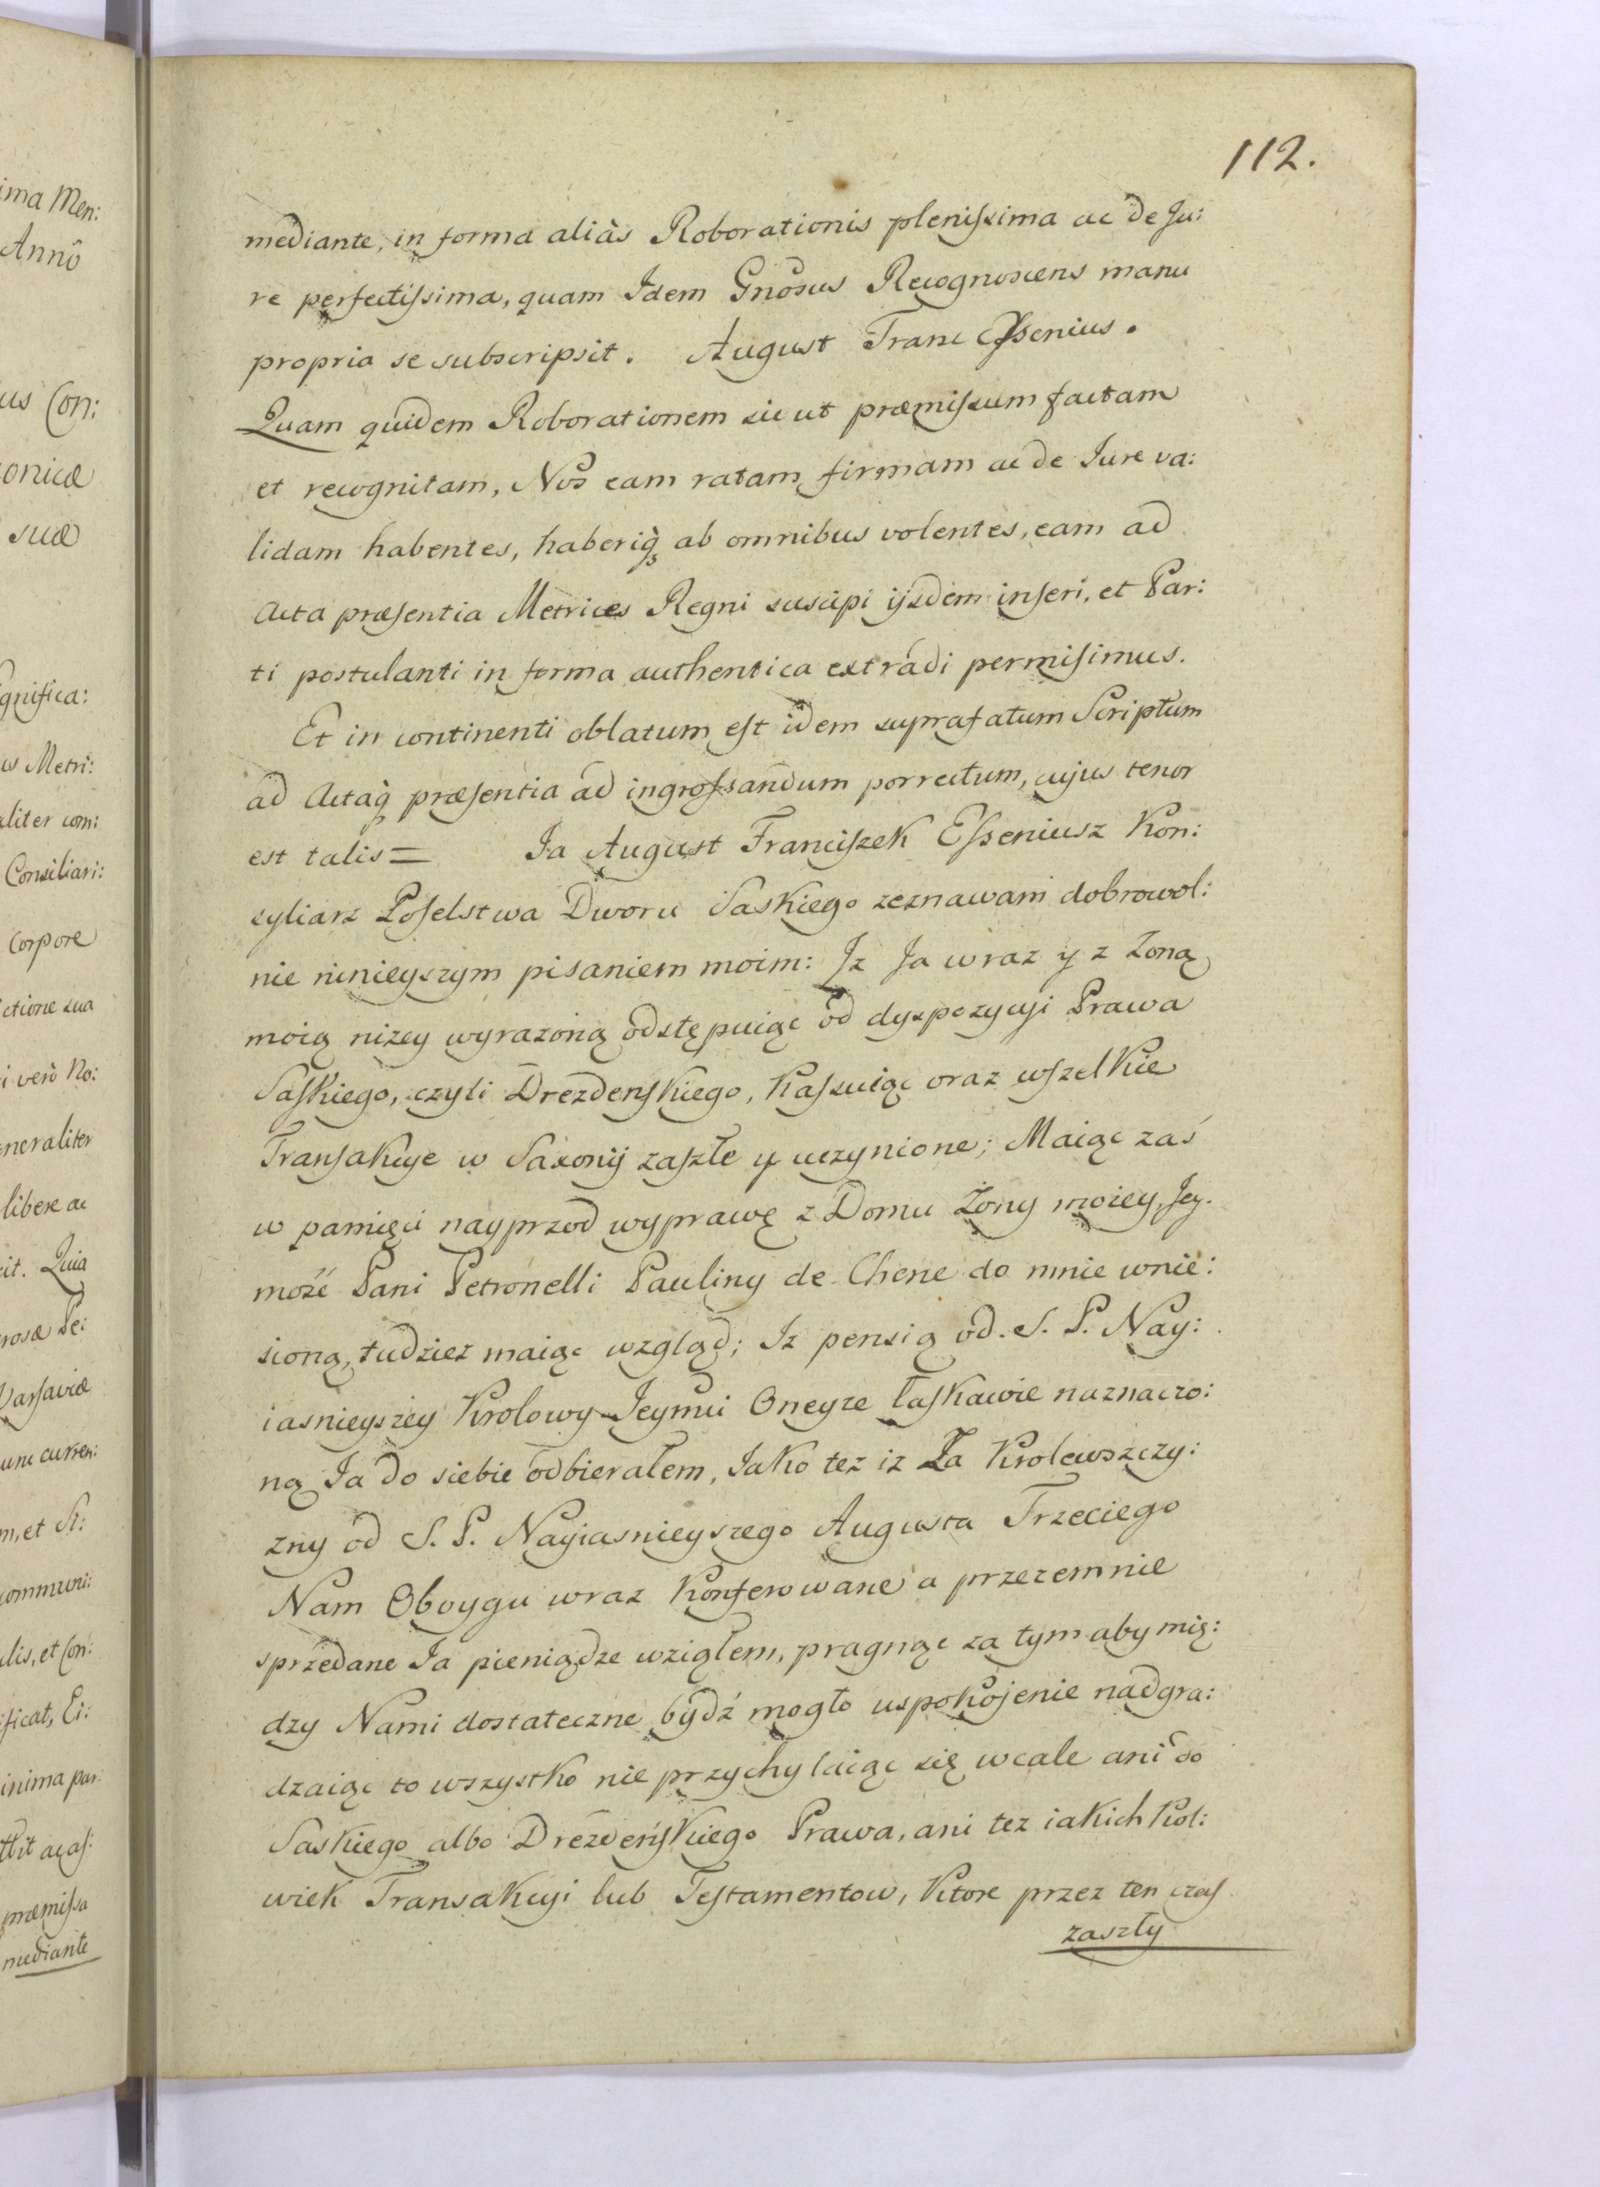 112.
mediante, in forma aliàs Roborationis plenissima ac de Ju:
re perfectissima, quam Idem Gnōsus Recognoscens manu
propria se subscripsit. August Franc Essenius.
Quam quidem Roborationem sic ut præmissum factam
et recognitam, Nos eam ratam, firmam ac de Iure va:
lidam habentes, haberiq̀ ab omnibus volentes, eam ad
Acta præsentia Metrices Regni suscipi ijsdem inseri, et Par:
ti postulanti in forma authentica extradi permisimus.
Et in continenti oblatum est idem suprafatum Scriptum
ad Actaq̀ præsentia ad ingrossandum porrectum, cujus tenor
est talis = Ja August Franciszek Esseniusz Kon:
syliarz Poselstwa Dworu Saskiego zeznawam dobrowol:
nie ninieyszym pisaniem moim: Jz Ja wraz y z Zoną
moią niżey wyrazoną odstępuiąc od dyspozycyi Prawa
Saskiego, czyli Drezdenskiego, Kassuiąc oraz wszelkie
Transakcye w Saxonij zaszłe y uczynione; Maiąc zaś
w pamięci nayprzod wyprawę z Domu Żony moiey, Jey.
mość Pani Petronelli Pauliny de Chene do mnie wnie:
sioną, tudzież maiąc wzgląd; Iz pensią od S. P. Nay:
iasnieyszey Krolowy Jeymci Oneyze łaskawie naznaczo:
ną Ja do siebie odbierałem, Jako tez iz Za Krolewszczy:
zny od S. P. Nayiasnieyszego Augusta Trzeciego
Nam Oboygu wraz Konferowane a przezemnie
sprzedane Ja pieniądze wziąłem, pragnąc za tym aby mię:
dzy Nami dostateczne bydź mogło uspokojenie nadgra:
dzaiąc to wszystko nie przychylaiąc się wcale ani do
Saskiego albo Drezdeńskiego Prawa, ani tez iakichkol:
wiek Transakcyi lub Testamentow, Ktore przez ten czas
zaszły
ima Men:
Annô
us Con:
onicæ
suæ
gnifica:
us Metri:
aliter com:
Consiliari:
Corpore
ctione sua
i verò No:
neraliter
libere ac
cit. Quia
rosæ Pe:
Varsaviæ
um curren:
m, et Si:
communi:
lis, et Con:
ificat, Ei:
inima par:
præmissa
mediante